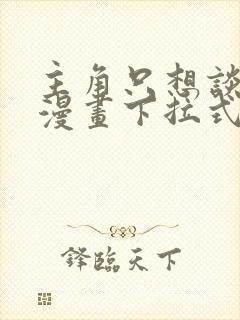 主角只想談
漫畫下拉式
鋒臨天下